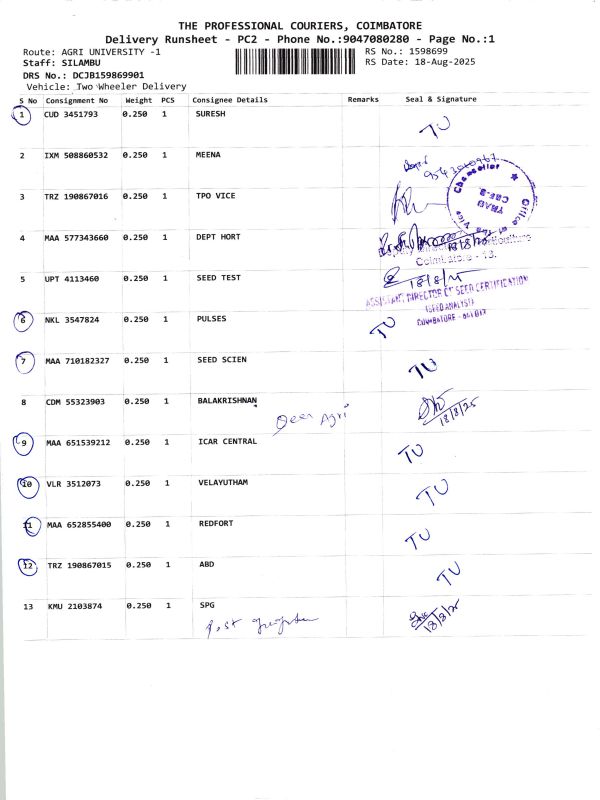 THE PROFESSIONAL COURIERS, COIMBATORE
Delivery Runsheet - PC2 - Phone No.:9047080280 - Page No.:1
Route: AGRI UNIVERSITY -1 RS No.: 1598699
Staff: SILAMBU RS Date: 18-Aug-2025
DRS No.: DCJB159869901
Vehicle: Two Wheeler Delivery
S No Consignment No Weight PCS Consignee Details Remarks Seal & Signature
1 CUD 3451793 0.250 1 SURESH TU
2 IXM 508860532 0.250 1 MEENA
3 TRZ 190867016 0.250 1 TPO VICE
Office of the Vice Chancellor
TNAU
CBE-3
4 MAA 577343660 0.250 1 DEPT HORT 18/8/25
Coimbatore - 13.
5 UPT 4113460 0.250 1 SEED TEST 18/8/25
ASSISTANT DIRECTOR OF SEED CERTIFICATION
(SEED ANALYST)
6 NKL 3547824 0.250 1 PULSES TU
7 MAA 710182327 0.250 1 SEED SCIEN TU
8 CDM 55323903 0.250 1 BALAKRISHNAN 18/8/25
Deen Agri
9 MAA 651539212 0.250 1 ICAR CENTRAL TU
10 VLR 3512073 0.250 1 VELAYUTHAM TU
11 MAA 652855400 0.250 1 REDFORT TU
12 TRZ 190867015 0.250 1 ABD TU
13 KMU 2103874 0.250 1 SPG 18/8/25